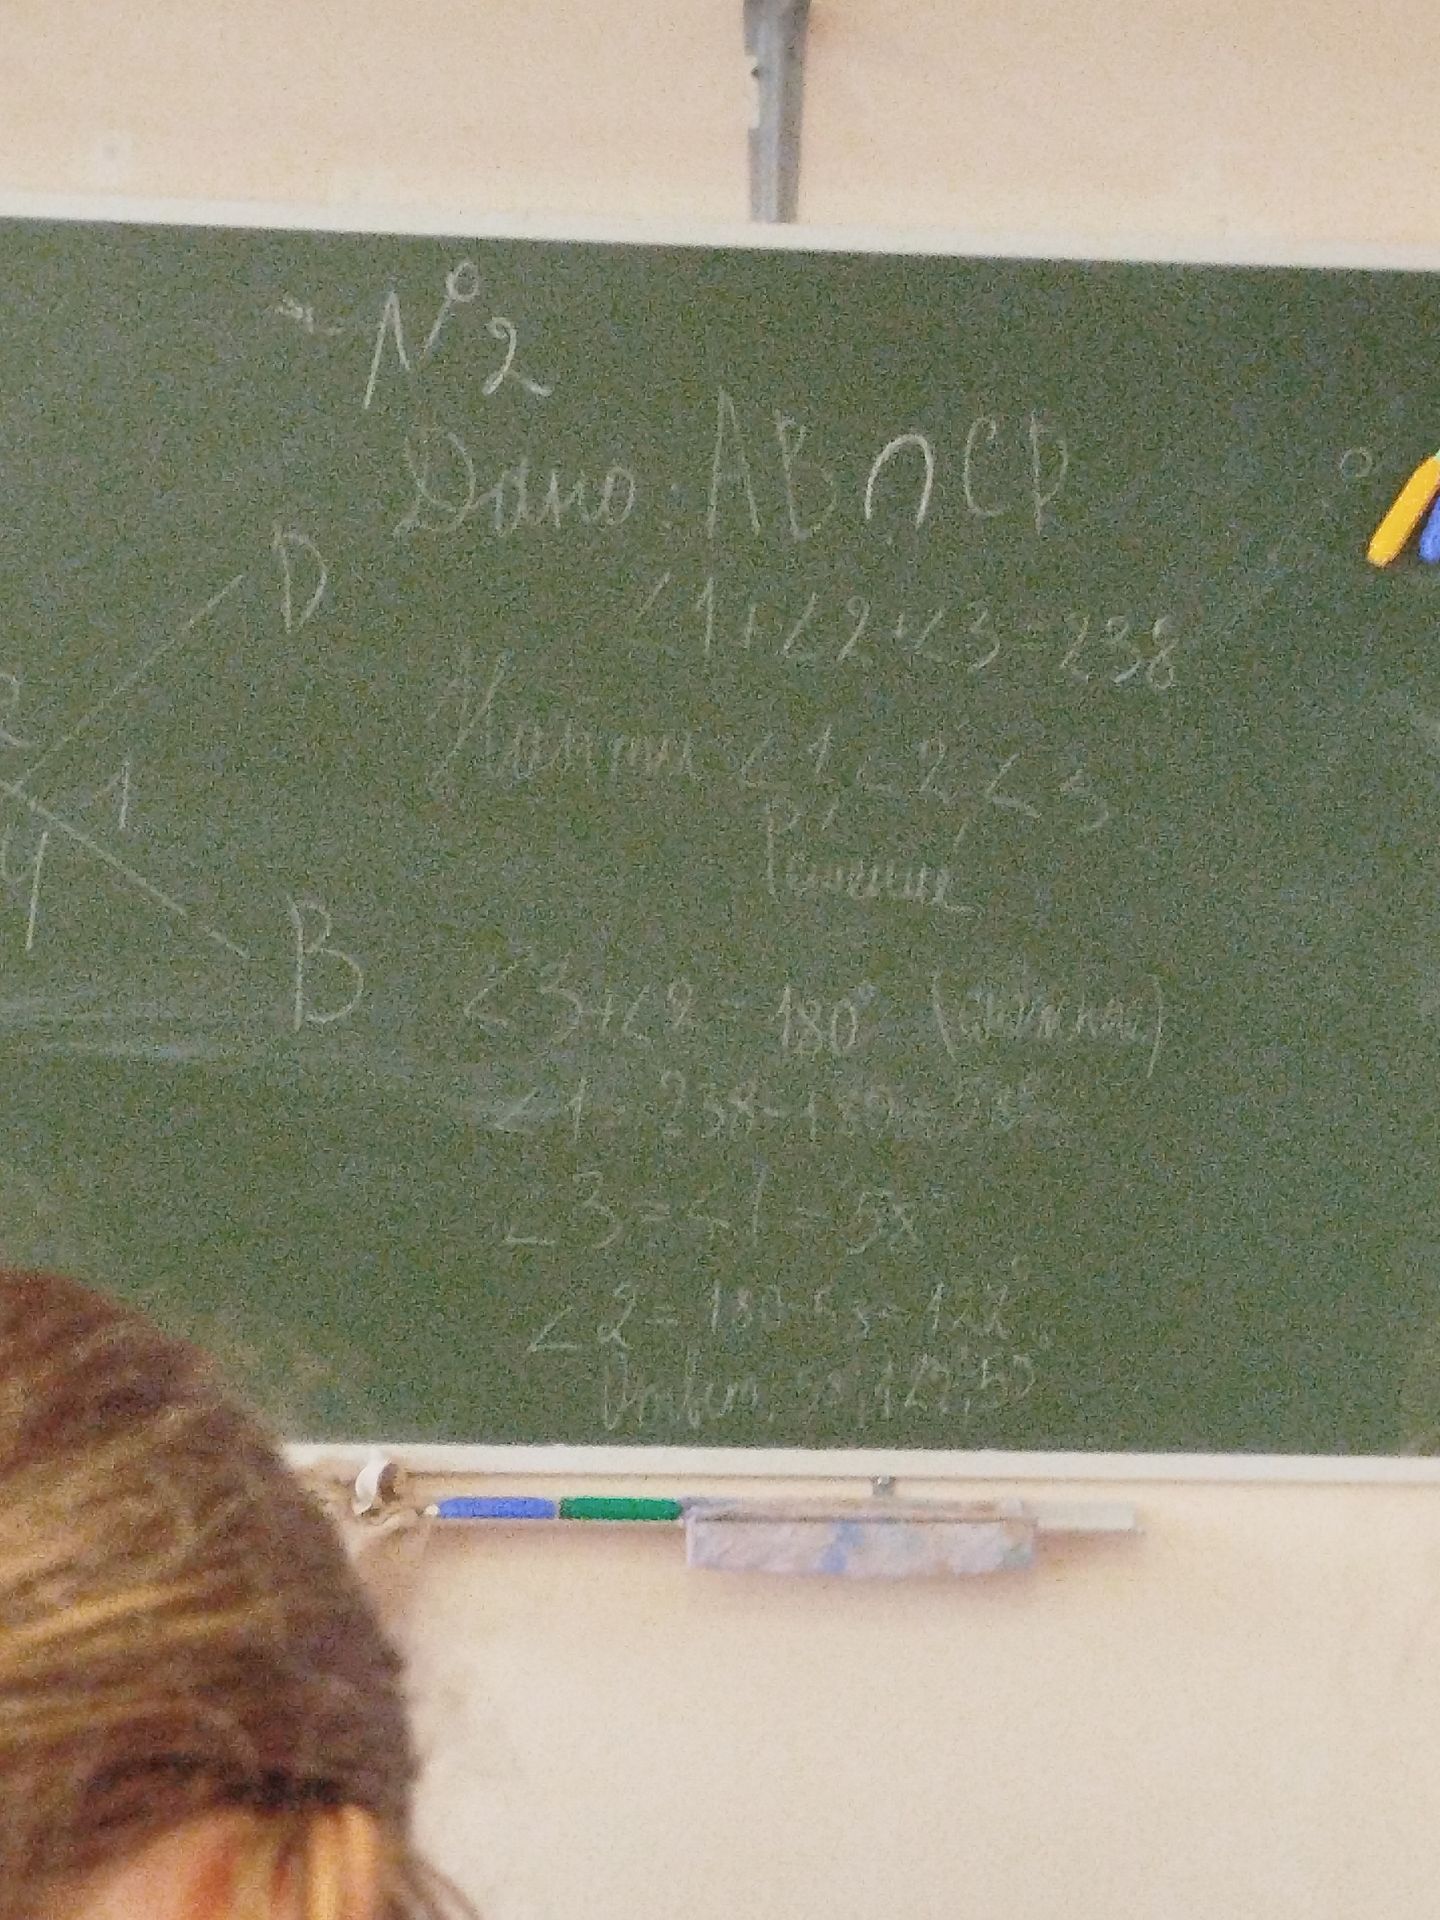 №2
Дано: AB∩CD
∠1+∠2+∠3=238
D
2
Найти ∠1, ∠2, ∠3
1
4
Решение
B
∠3+∠2=180° (смежные)
∠1=238-180=58°
∠3=∠1=58
∠2=180-58=122°
Ответ: 58, 122, 58